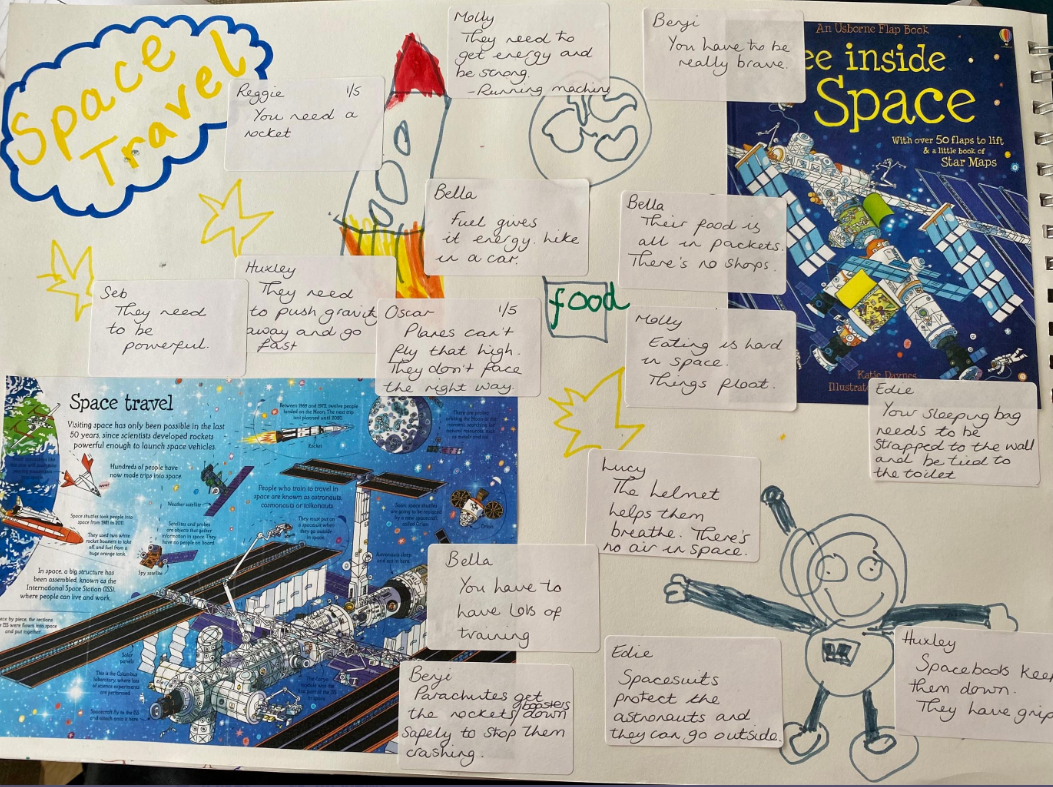 Space
Travel
Reggie 1/5
You need a
rocket
Molly
They need to
get energy and
be strong.
- Running machine
Benji
You have to be
really brave.
An Usborne Flap Book
ee inside
Space
With over 50 flaps to lift
& a little book of
Star Maps
Katie Daynes
Illustrat
Bella
Fuel gives
it energy like
in a car.
Bella
Their food is
all in packets.
There's no shops.
Seb
They need
to be
powerful.
Huxley
They need
to push gravity
away and go
fast
Oscar 1/5
Planes can't
fly that high.
They don't face
the right way.
food
Molly
Eating is hard
in space.
Things float.
Edie
Your sleeping bag
needs to be
strapped to the wall
and be tied to
the toilet
Lucy
The helmet
helps them
breathe. There's
no air in space.
Bella
You have to
have lots of
training
Benji
Parachutes get
the rockets boosters down
safely to stop them
crashing.
Edie
Spacesuits
protect the
astronauts and
they can go outside.
Huxley
Spaceboots keep
them down.
They have grip
Space travel
Visiting space has only been possible in the last
50 years, since scientists developed rockets
powerful enough to launch space vehicles.
Hundreds of people have
now made trips into space.
Space shuttles took people into
space from 1981 to 2011.
They used two white
rocket boosters to take
off, and fuel from a
huge orange tank.
In space, a big structure has
been assembled, known as the
International Space Station (ISS),
where people can live and work.
Weather satellite
Spy satellite
Rocket
People who train to travel in
space are known as astronauts,
cosmonauts or taikonauts.
Orion
Solar
panels